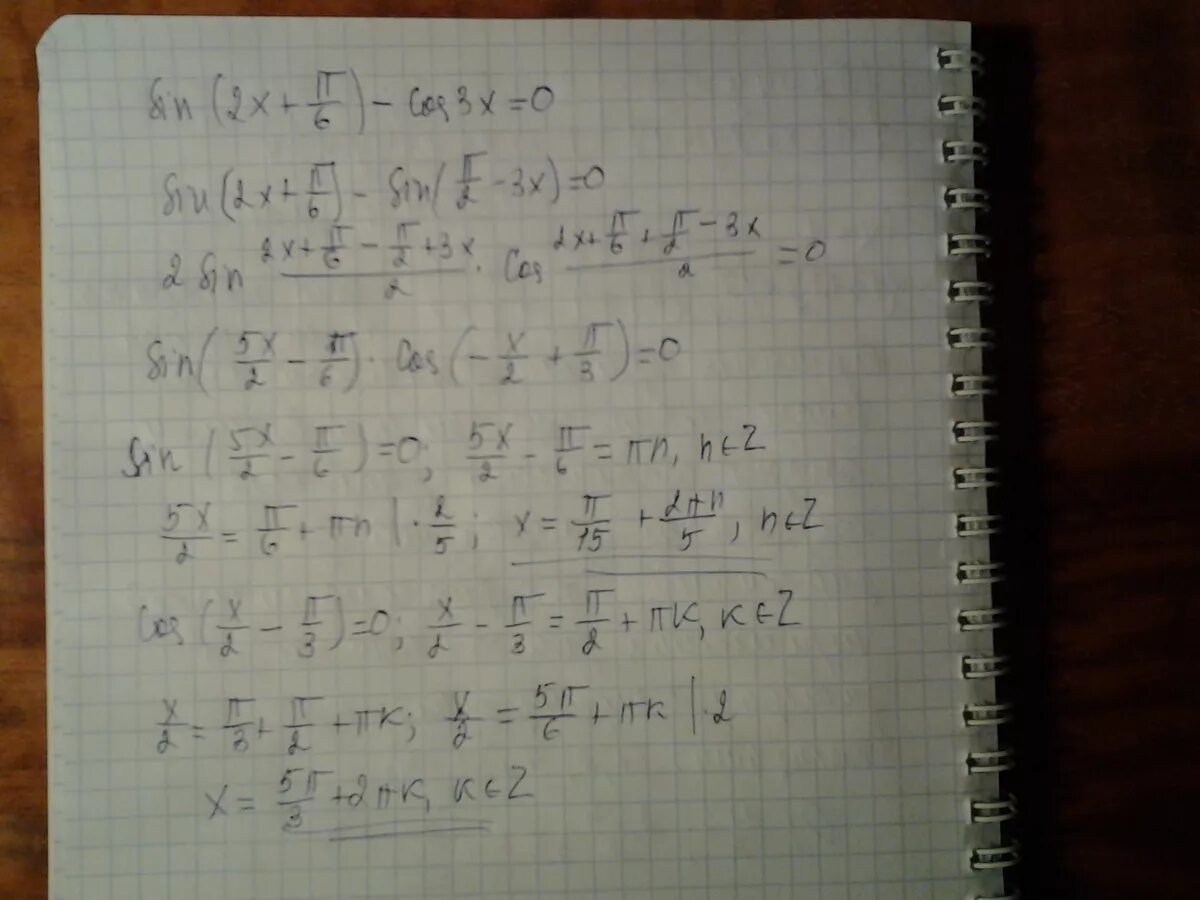 sin(2x + π/6) - cos3x = 0
sin(2x + π/6) - sin(π/2 - 3x) = 0
2 sin (2x + π/6 - π/2 + 3x)/2 · cos (2x + π/6 + π/2 - 3x)/2 = 0
sin(5x/2 - π/6) · cos(-x/2 + π/3) = 0
sin(5x/2 - π/6) = 0; 5x/2 - π/6 = πn, n∈Z
5x/2 = π/6 + πn | · 2/5; x = π/15 + 2πn/5, n∈Z
cos(x/2 - π/3) = 0; x/2 - π/3 = π/2 + πk, k∈Z
x/2 = π/3 + π/2 + πk; x/2 = 5π/6 + πk | · 2
x = 5π/3 + 2πk, k∈Z